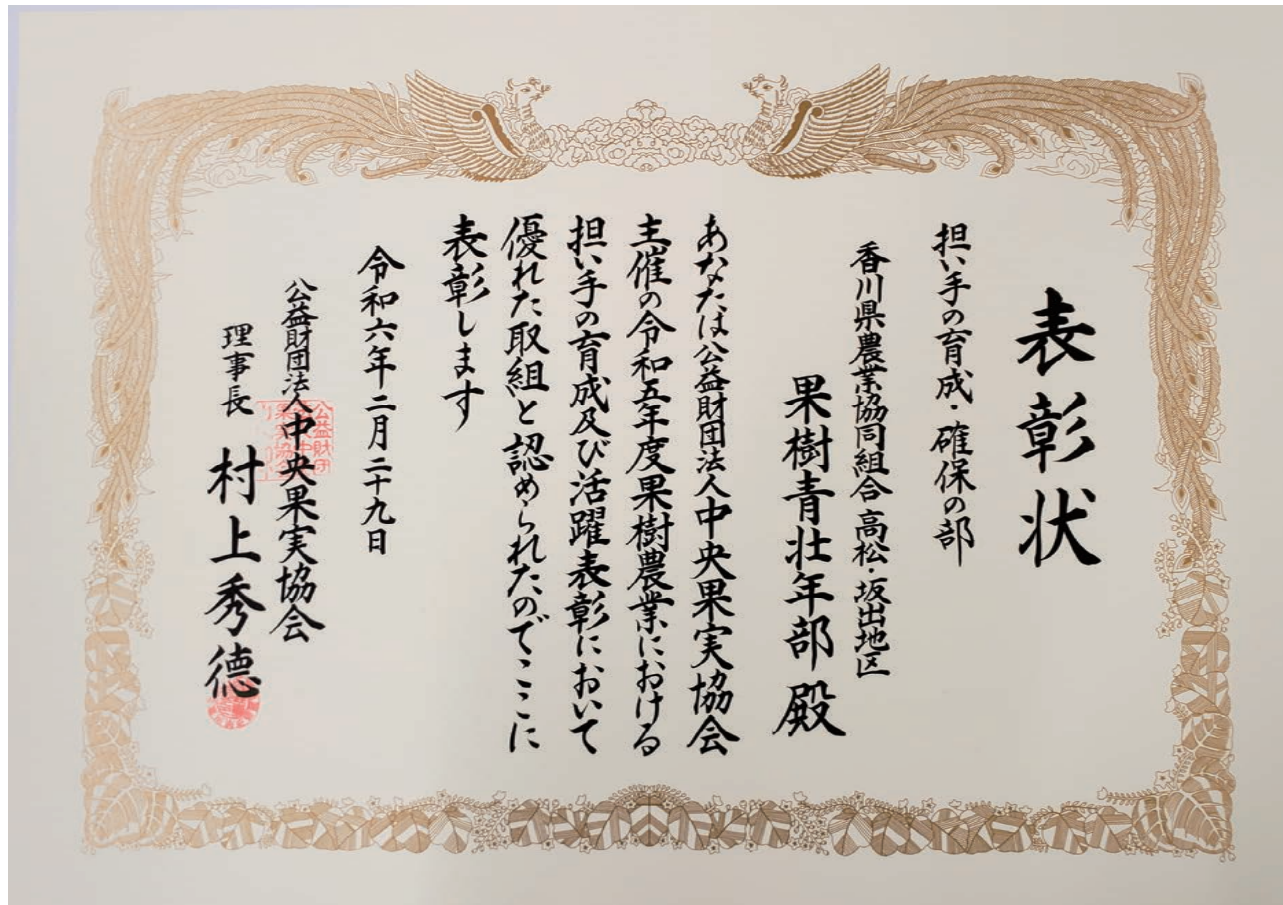 表彰状
担い手の育成・確保の部
香川県農業協同組合 高松・坂出地区
果樹青壮年部 殿
あなたは公益財団法人中央果実協会
主催の令和五年度果樹農業における
担い手の育成及び活躍表彰において
優れた取組と認められたのでここに
表彰します
令和六年二月二十九日
公益財団法人中央果実協会
理事長 村上秀德